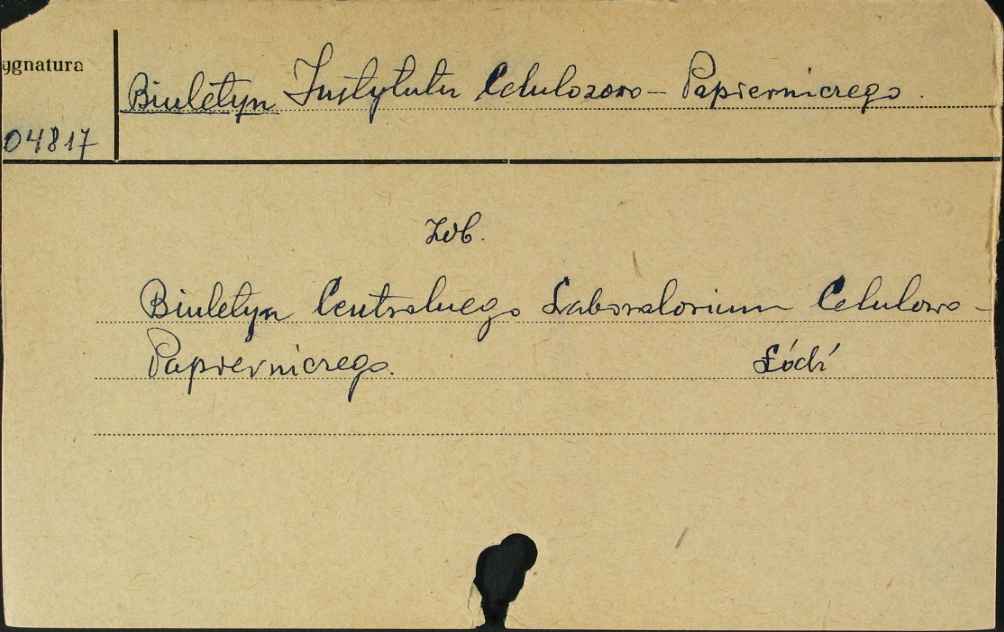 ygnatura
Biuletyn Instytutu Celulozowo - Papierniczego.
04817
Zob.
Biuletyn Centralnego Laboratorium Celulozo-
Papierniczego. Łódź